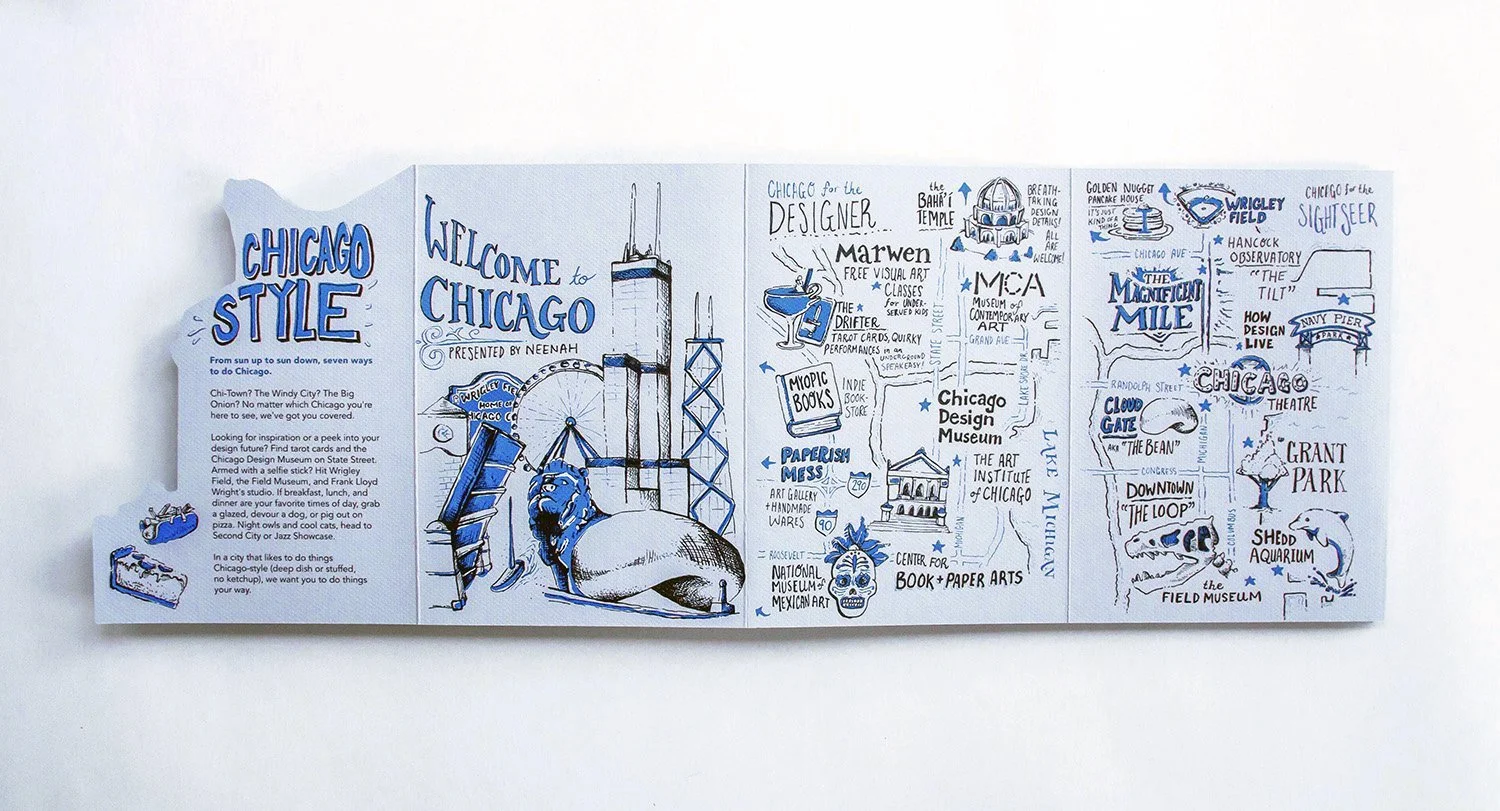 CHICAGO
STYLE
From sun up to sun down, seven ways
to do Chicago.
Chi-Town? The Windy City? The Big
Onion? No matter which Chicago you're
here to see, we've got you covered.
Looking for inspiration or a peek into your
design future? Find tarot cards and the
Chicago Design Museum on State Street.
Armed with a selfie stick? Hit Wrigley
Field, the Field Museum, and Frank Lloyd
Wright's studio. If breakfast, lunch, and
dinner are your favorite times of day, grab
a glazed, devour a dog, or pig out on
pizza. Night owls and cool cats, head to
Second City or Jazz Showcase.
In a city that likes to do things
Chicago-style (deep dish or stuffed,
no ketchup), we want you to do things
your way.
WELCOME to
CHICAGO
PRESENTED BY NEENAH
WRIGLEY FIE
HOME OF
CHICAGO C
CHICAGO for the
DESIGNER
the
BAHÁ'Í
TEMPLE
BREATH-
TAKING
DESIGN
DETAILS!
ALL
ARE
WELCOME!
Marwen
FREE VISUAL ART
CLASSES
for UNDER-
SERVED KIDS
MCA
MUSEUM of
CONTEMPORARY
ART
THE
DRIFTER
TAROT CARDS, QUIRKY
PERFORMANCES in an
UNDERGROUND
SPEAKEASY!
STATE STREET
GRAND AVE
LAKE SHORE DR.
MYOPIC
BOOKS
INDIE
BOOK-
STORE
Chicago
Design
Museum
LAKE MICHIGAN
PAPERISH
MESS
ART GALLERY
+ HANDMADE
WARES
290
90
THE ART
INSTITUTE
of CHICAGO
MICHIGAN
ROOSEVELT
NATIONAL
MUSEUM of
MEXICAN ART
CENTER FOR
BOOK + PAPER ARTS
GOLDEN NUGGET
PANCAKE HOUSE
IT'S JUST
KIND OF A
THING
WRIGLEY
FIELD
CHICAGO for the
SIGHTSEER
CHICAGO AVE
HANCOCK
OBSERVATORY
"THE
TILT"
THE
MAGNIFICENT
MILE
HOW
DESIGN
LIVE
NAVY PIER
PARK
RANDOLPH STREET
CHICAGO
THEATRE
CLOUD
GATE
AKA "THE BEAN"
MICHIGAN
CONGRESS
GRANT
PARK
DOWNTOWN
"THE LOOP"
COLUMBUS
SHEDD
AQUARIUM
the
FIELD MUSEUM